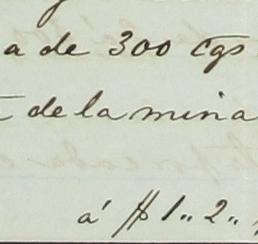 a de 300 cgs
de la mina
á $ 1.. 2..